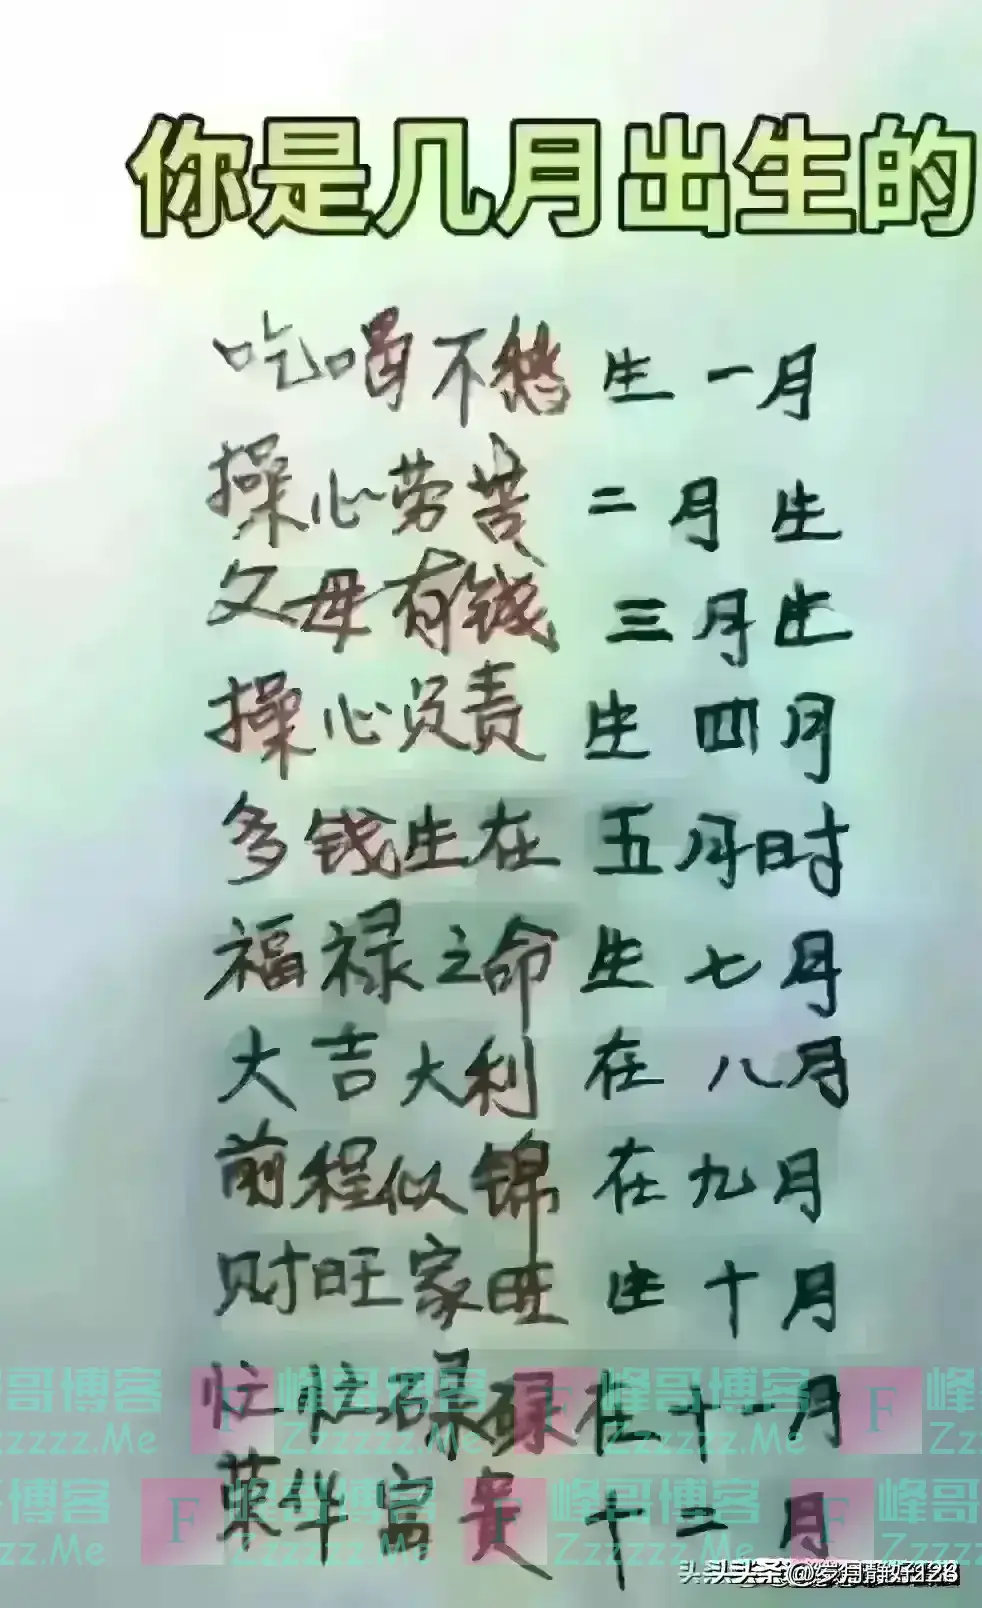 你是几月出生的
吃喝不愁 生一月
操心劳苦 二月生
父母有钱 三月生
操心负责 生四月
多钱生在 五月时
福禄之命 生七月
大吉大利 在八月
前程似锦 在九月
财旺家旺 生十月
忙忙碌碌在十一月
荣华富贵 十二月
F 峰哥博客 Zzzzzz.Me
F 峰哥博客 Zzzzzz.Me
头条 @岁月静好128